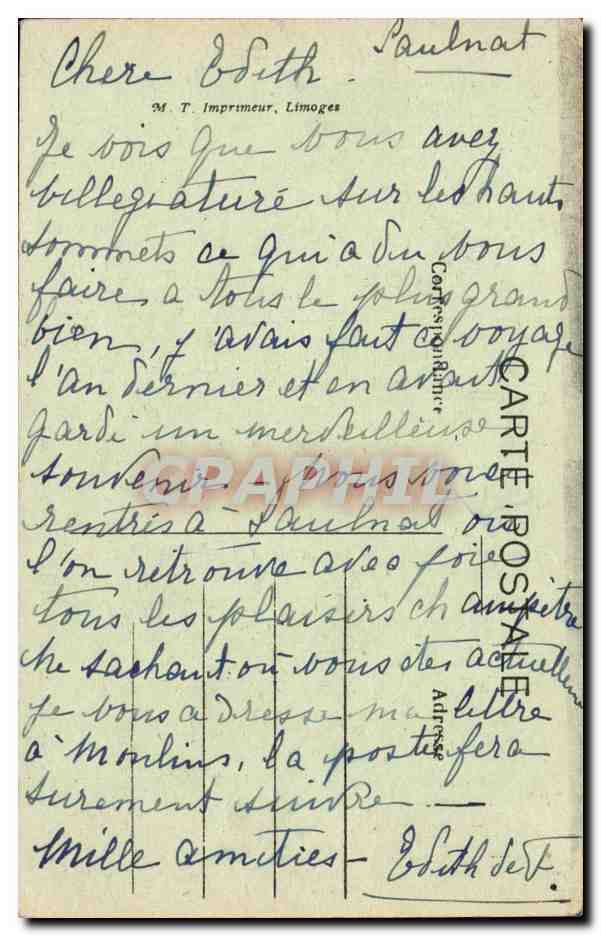 Saulnat
Chere Edith.
M. T. Imprimeur, Limoges
Je vois que vous avez
villegiaturé sur les hauts
sommets ce qui a du vous
faire a tous le plus grand
bien, j'avais fait ce voyage
l'an dernier et en avait
gardé un merveilleuse
souvenir - Nous voici
rentrés à Saulnat ou
l'on retrouve avec joie
tous les plaisirs champêtre
Ne sachant où vous êtes actuellement
je vous adresse ma lettre
à Moulins, la poste fera
surement suivre —
Mille amities - Edith de F.
Correspondance
CARTE POSTALE
Adresse
CPAPHIL